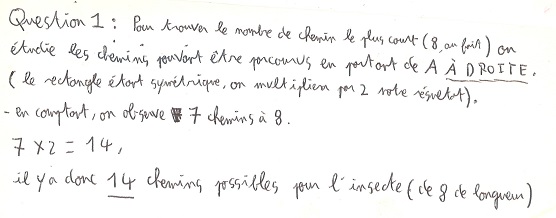 Question 1 : Pour trouver le nombre de chemin le plus court (8, au fait) on
étudie les chemins pouvant être parcourus en partant de A À DROITE.
(le rectangle étant symétrique, on multipliera par 2 notre résultat).
- en comptant, on observe 7 chemins à 8.
7 x 2 = 14,
il y a donc 14 chemins possibles pour l'insecte (de 8 de longueur)